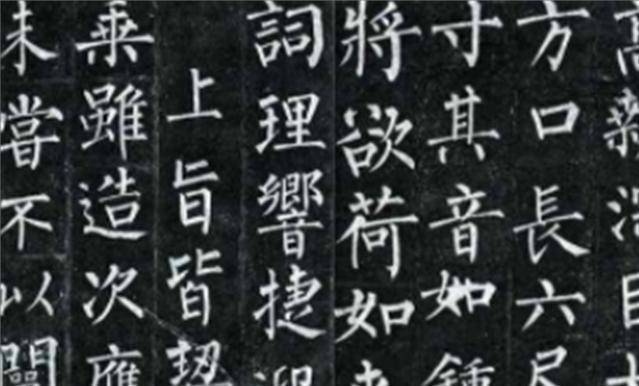 方口長六尺
寸其音如鍾
將欲荷如
詞理響捷
上旨皆契
乗雖造次應
未嘗不以開